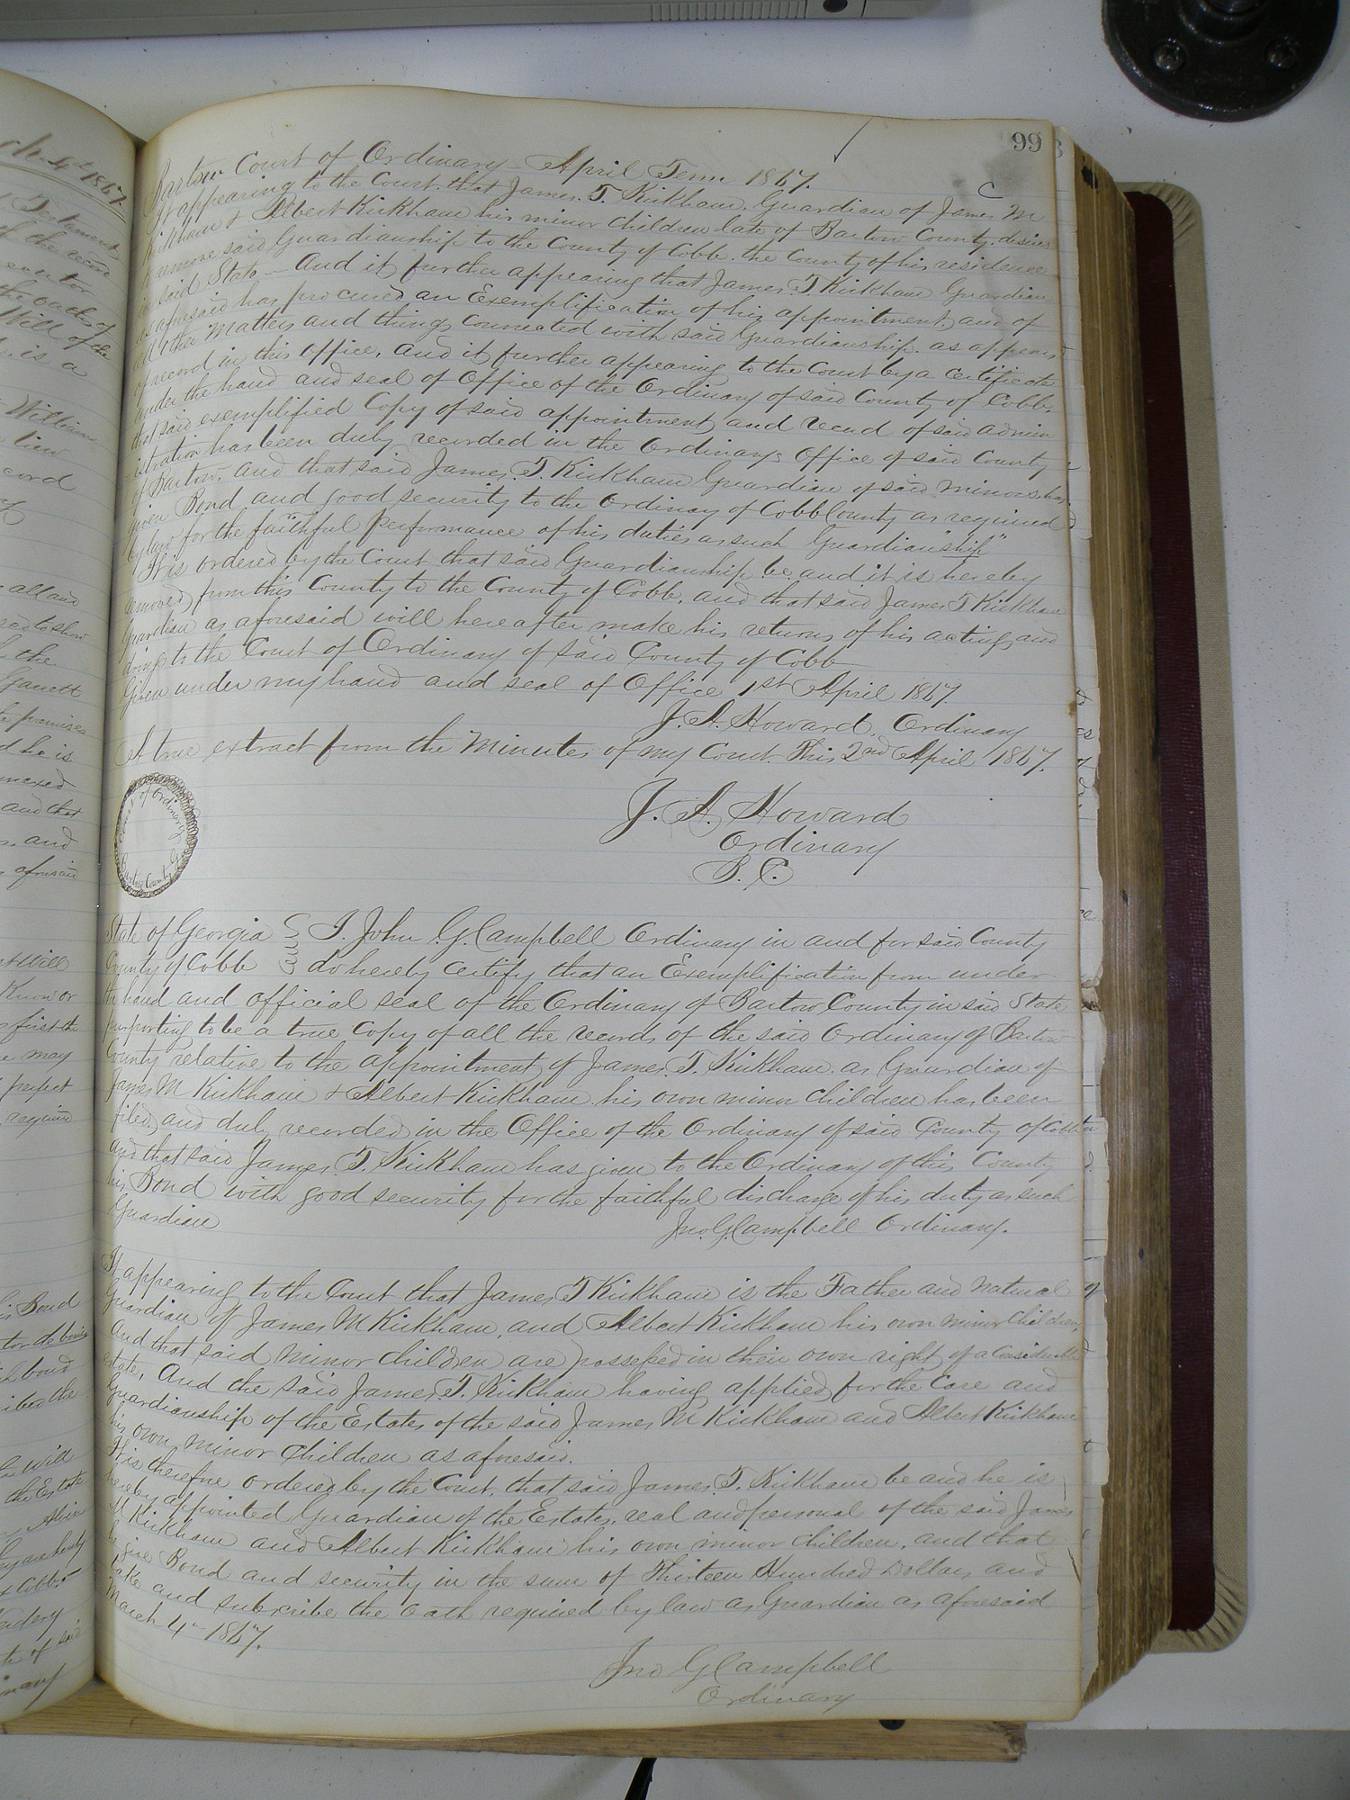 99
Bartow Court of Ordinary April Term 1867.
It appearing to the Court that James T. Kirkham, Guardian of James M
Kirkham & Albert Kirkham his minor children late of Bartow County desires
to remove said Guardianship to the County of Cobb. the County of his residence
in said State — And it further appearing that James T Kirkham Guardian
as aforesaid has procured an Exemplification of his appointment, and of
all other Matters and things connected with said Guardianship. as appears
of record in this office, and it further appearing to the Court by a certificate
under the hand and seal of Office of the Ordinary of said County of Cobb.
that said exemplified Copy of said appointment and record of said admin
istration has been duly recorded in the Ordinary's Office of said County
of Bartow, and that said James T. Kirkham Guardian of said minors has
given Bond and good security to the Ordinary of Cobb County as required
by law for the faithful performance of his duties as such Guardian"ship"
It is ordered by the Court that said Guardianship be and it is hereby
removed from this County to the County of Cobb, and that said James T Kirkham
Guardian as aforesaid will hereafter make his returns of his acting and
doings to the Court of Ordinary of said County of Cobb
Given under my hand and seal of Office 1st April 1867.
J. A. Howard. Ordinary
A true extract from the Minutes of my Court This 2nd April 1867.
J. A. Howard
Ordinary
B. C.
Court of Ordinary
Bartow County Ga
State of Georgia I. John G. Campbell Ordinary in and for said County
County of Cobb do hereby certify that an Exemplification from under
the hand and official seal of the Ordinary of Bartow County in said State
purporting to be a true Copy of all the records of the said Ordinary of Bartow
County relative to the appointment of James T. Kirkham as Guardian of
James M Kirkham & Albert Kirkham his own minor children has been
filed and duly recorded in the Office of the Ordinary of said County of Cobb
And that said James T. Kirkham has given to the Ordinary of this County
his Bond with good security for the faithful discharge of his duty as such
Guardian
Jno. G. Campbell Ordinary.
It appearing to the Court that James T Kirkham is the Father and Natural
Guardian of James M Kirkham, and Albert Kirkham his own minor Children,
And that said minor children are possessed in their own right of a Considerable
estate, And the said James T. Kirkham having applied for the Care and
Guardianship of the Estates of the said James M Kirkham and Albert Kirkham
his own minor Children as aforesaid.
It is therefore ordered by the Court, that said James T. Kirkham be and he is
hereby appointed Guardian of the Estates, real and personal of the said James
M Kirkham and Albert Kirkham his own minor children, and that
he give Bond and security in the sum of Thirteen Hundred Dollars and
take and subscribe the Oath required by law as Guardian as aforesaid
March 4th 1867.
Jno G Campbell
Ordinary